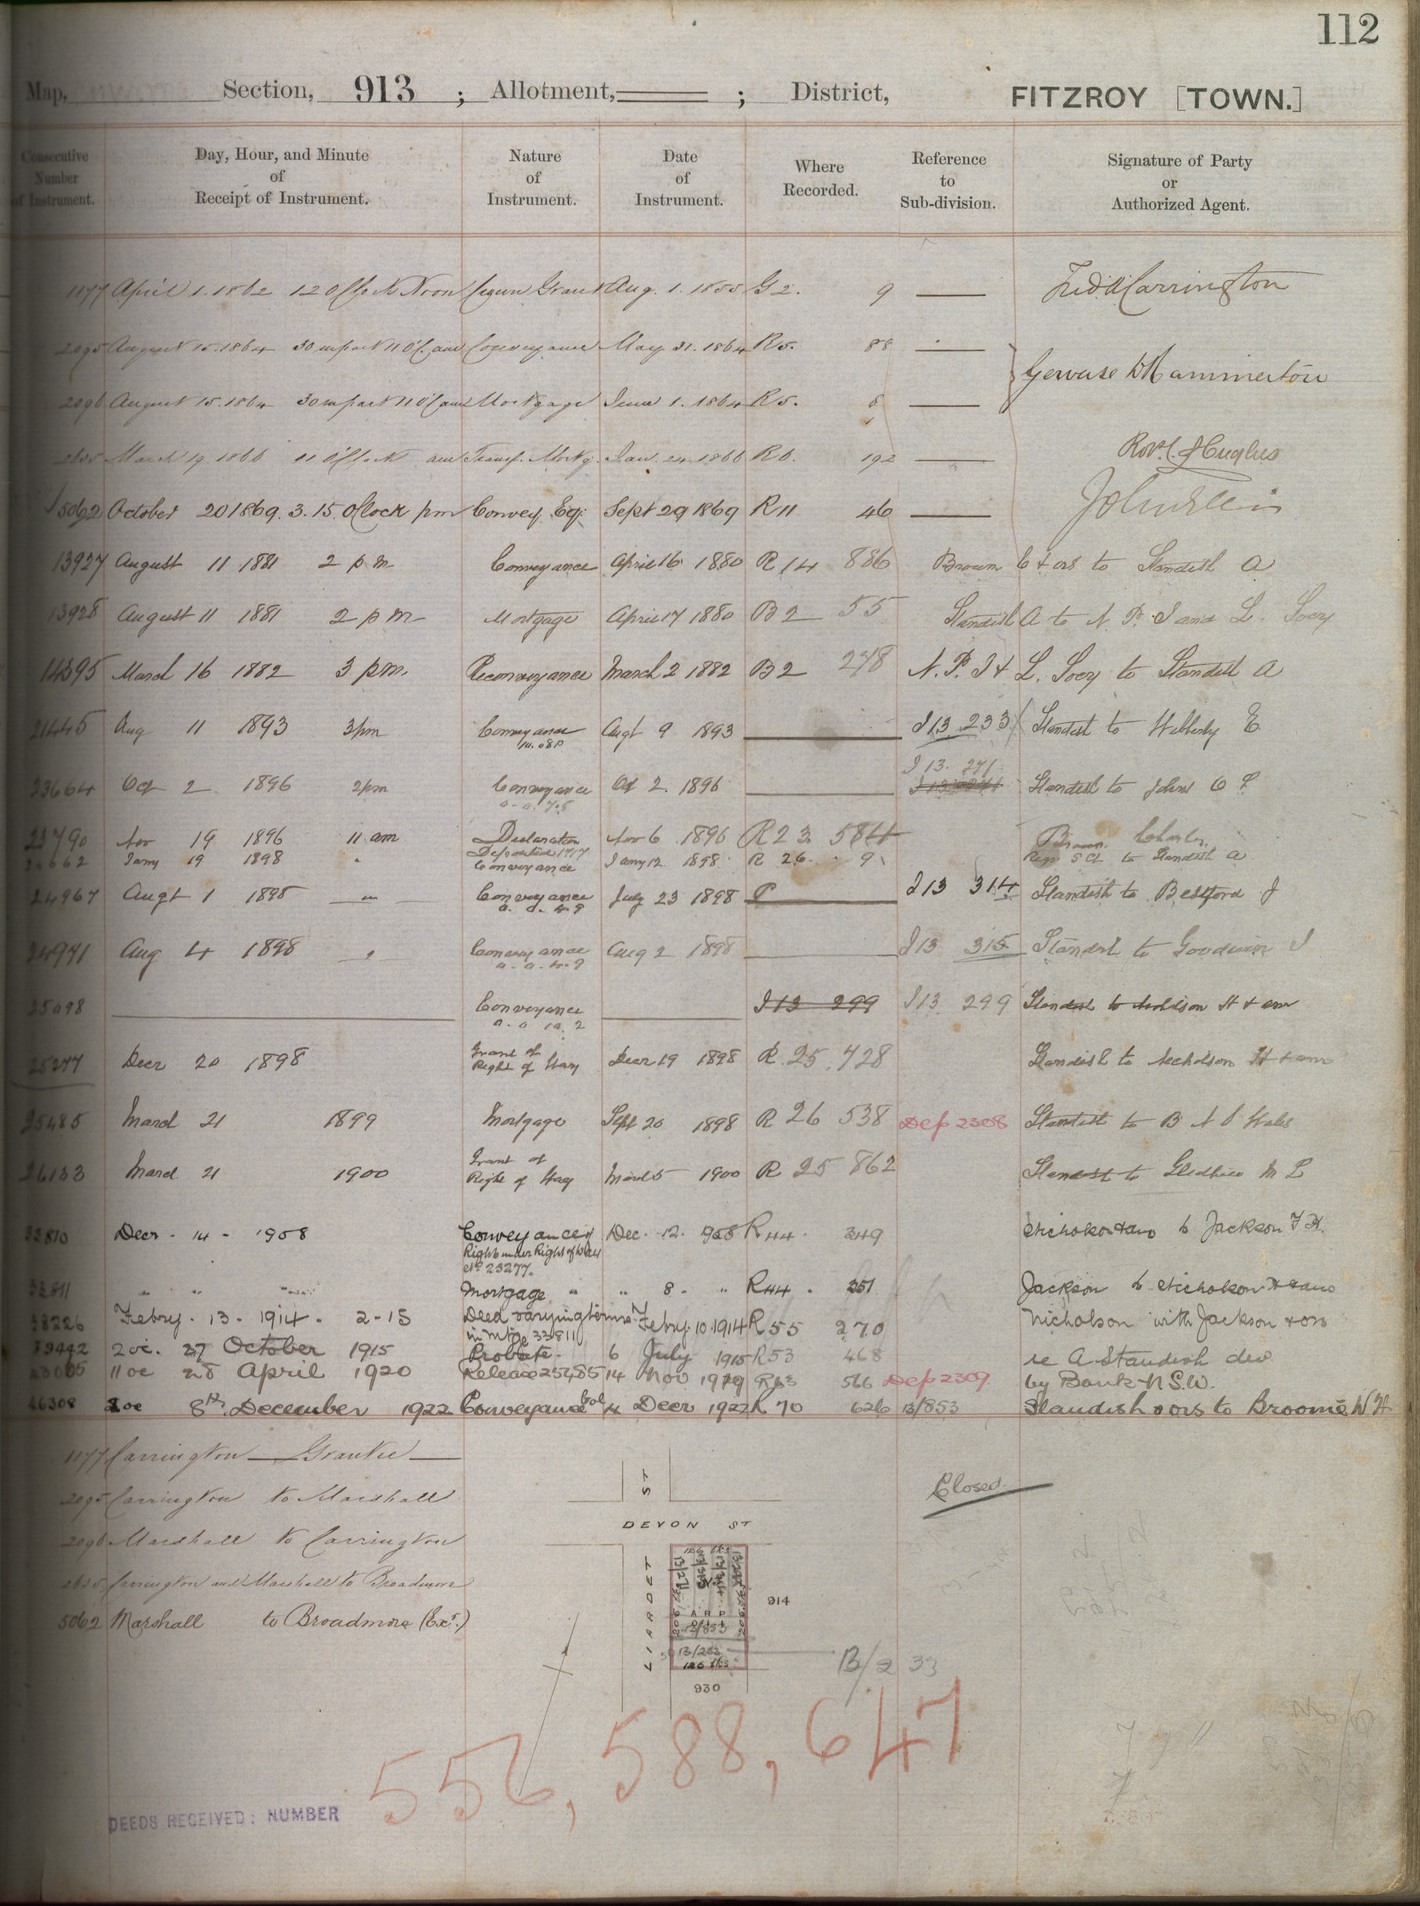 112
Map, Section, 913 ; Allotment, ; District, FITZROY [TOWN.]
Consecutive Number of Instrument.
Day, Hour, and Minute of Receipt of Instrument.
Nature of Instrument.
Date of Instrument.
Where Recorded.
Reference to Sub-division.
Signature of Party or Authorized Agent.
1177 April 1. 1862 12 O'Clock Noon Crown Grant Aug. 1. 1855 G 2. 9 Fredk Carrington
2095 August 15. 1864 30 m past 11 O'C. am Conveyance May 31. 1864 R 5. 88
Gervase D Hammerton
2096 August 15. 1864 30 m past 11 O'C am Mortgage June 1. 1864 R 5. 8
March 19 1866 11 O'Clock am Transf. Mortg. Jan. 24 1866 R 6. 192 Hughes
5062 October 20 1869. 3. 15 O'Clock pm Convey. Eq: Sept 29 1869 R 11 46
13927 August 11 1881 2 p.m Conveyance April 16 1880 R 14 886 Brown C & ors to Standish A
13928 August 11 1881 2 p m Mortgage April 17 1880 B 2 55 Standish A to N. P. I and L. Socy
14395 March 16 1882 3 p.m. Reconveyance March 2 1882 B 2 278 N. P. I & L. Socy to Standish A
21445 Aug 11 1893 3pm Conveyance Augt 9 1893 I 13 233 Standish to Wibberly E
I 13. 271
23664 Oct 2 1896 2pm Conveyance Oct 2. 1896 Standish to Johns
23790 Nov 19 1896 11 am Declaration Nov 6 1896 R 23 584 Brown Charles
Deposited 1717
24662 Jany 19 1898 " Conveyance Jany 12 1898 R 26. 9 Regr S Ct to Standish A
24967 Augt 1 1898 " Conveyance July 23 1898 I 13 314 Standish to Bedford J
24971 Aug 4 1898 " Conveyance Aug 2 1898 I 13 315 Standish to Goodwin J
25098 Conveyance I 13 299 I 13 299 Standish to Nicholson H & anr
25277 Decr 20 1898 Grant of Right of Way Decr 19 1898 R. 25. 728 Standish to Nicholson H & anr
25485 March 21 1899 Mortgage Sept 20 1898 R 26 538 Dep 2308 Standish to B N S Wales
26133 March 21 1900 Grant of Right of Way March 5 1900 R 25 862 Standish to M L
32810 Decr - 14 - 1908 Conveyance of Dec. 12. 1908 R 44. 349 Nicholson & anr to Jackson F H.
Right under Right of Way
No 25277.
32811 " " " Mortgage " " 8. " R 44. 351 Jackson to Nicholson & anr
38226 Febry. 13. 1914. 2-15 Deed varying terms Febry. 10. 1914 R 55 270 Nicholson with Jackson & ors
in Mtge 32811
39442 2 oc. 27 October 1915 Probate 6 July 1915 R 53 468 re A. Standish decd
43065 11 oc 28 April 1920 Release 25485 14 Nov 1919 R 63 566 Dep 2309 by Bank N.S.W.
46308 8th December 1922 Conveyance Bal 4 Decr 1922 R 70 626 13/853 Standish & ors to Broome W H
1177 Carrington — Grantee —
2095 Carrington to Marshall
2096 Marshall to Carrington
Carrington and Marshall to Broadmore
5062 Marshall to Broadmore (Exr.)
Closed
ST
DEVON ST
LIARDET
914
930
13/853
13/233
13/2 33
556, 588, 647
DEEDS RECEIVED: NUMBER